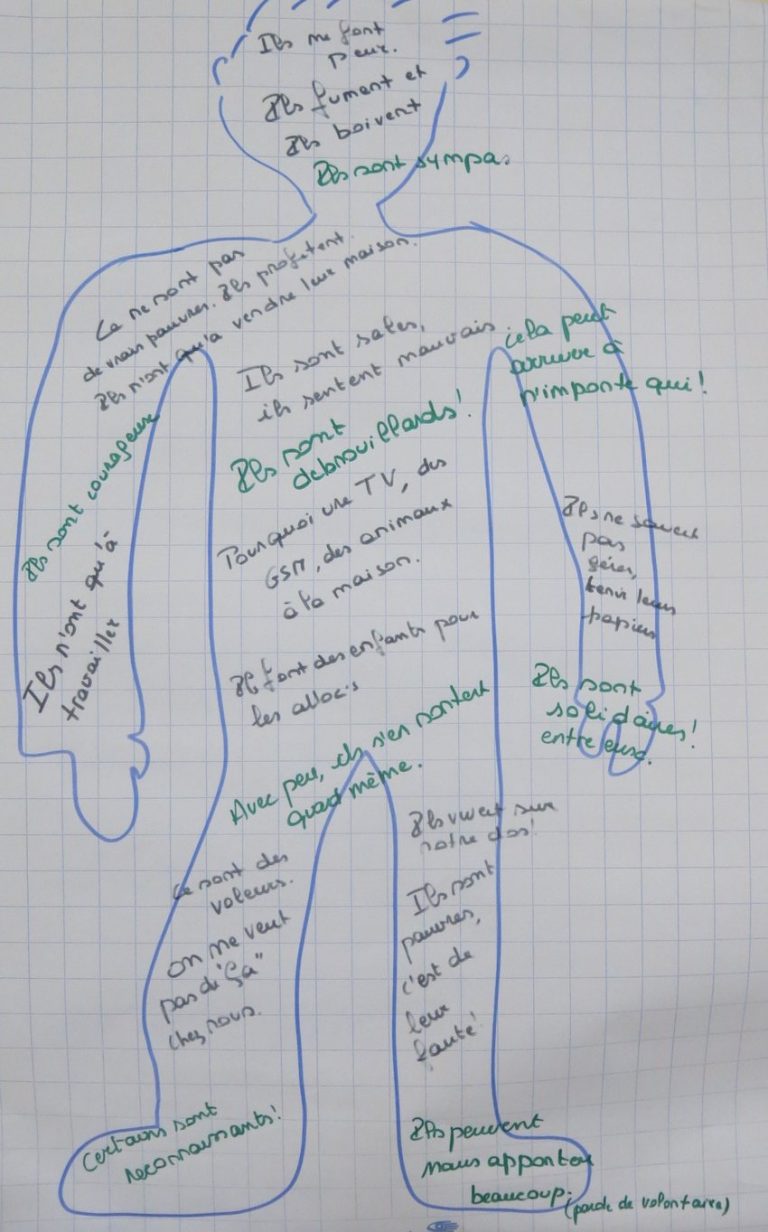 Ils me font
peur.
Ils fument et
Ils boivent
Ils sont sympas.
Ce ne sont pas
de vrais pauvres. Ils profitent.
Ils n'ont qu'à vendre leur maison.
Ils sont sales,
ils sentent mauvais
cela peut
arriver à
n'importe qui !
Ils sont courageux
Ils sont
debrouillards !
Pourquoi une TV, des
GSM, des animaux
à la maison.
Ils ne savent
pas
gérer,
tenir leurs
papiers
Ils n'ont qu'à
travailler
Ils font des enfants pour
les alloc's
Ils sont
solidaires !
entre eux.
Avec peu, ils s'en sortent
quand même.
Ils vivent sur
notre dos !
Ce sont des
voleurs.
on ne veut
pas de "ça"
chez nous.
Ils sont
pauvres,
c'est de
leur
faute !
Certains sont
reconnaissants !
Ils peuvent
nous apporter
beaucoup.
(parole de volontaire)